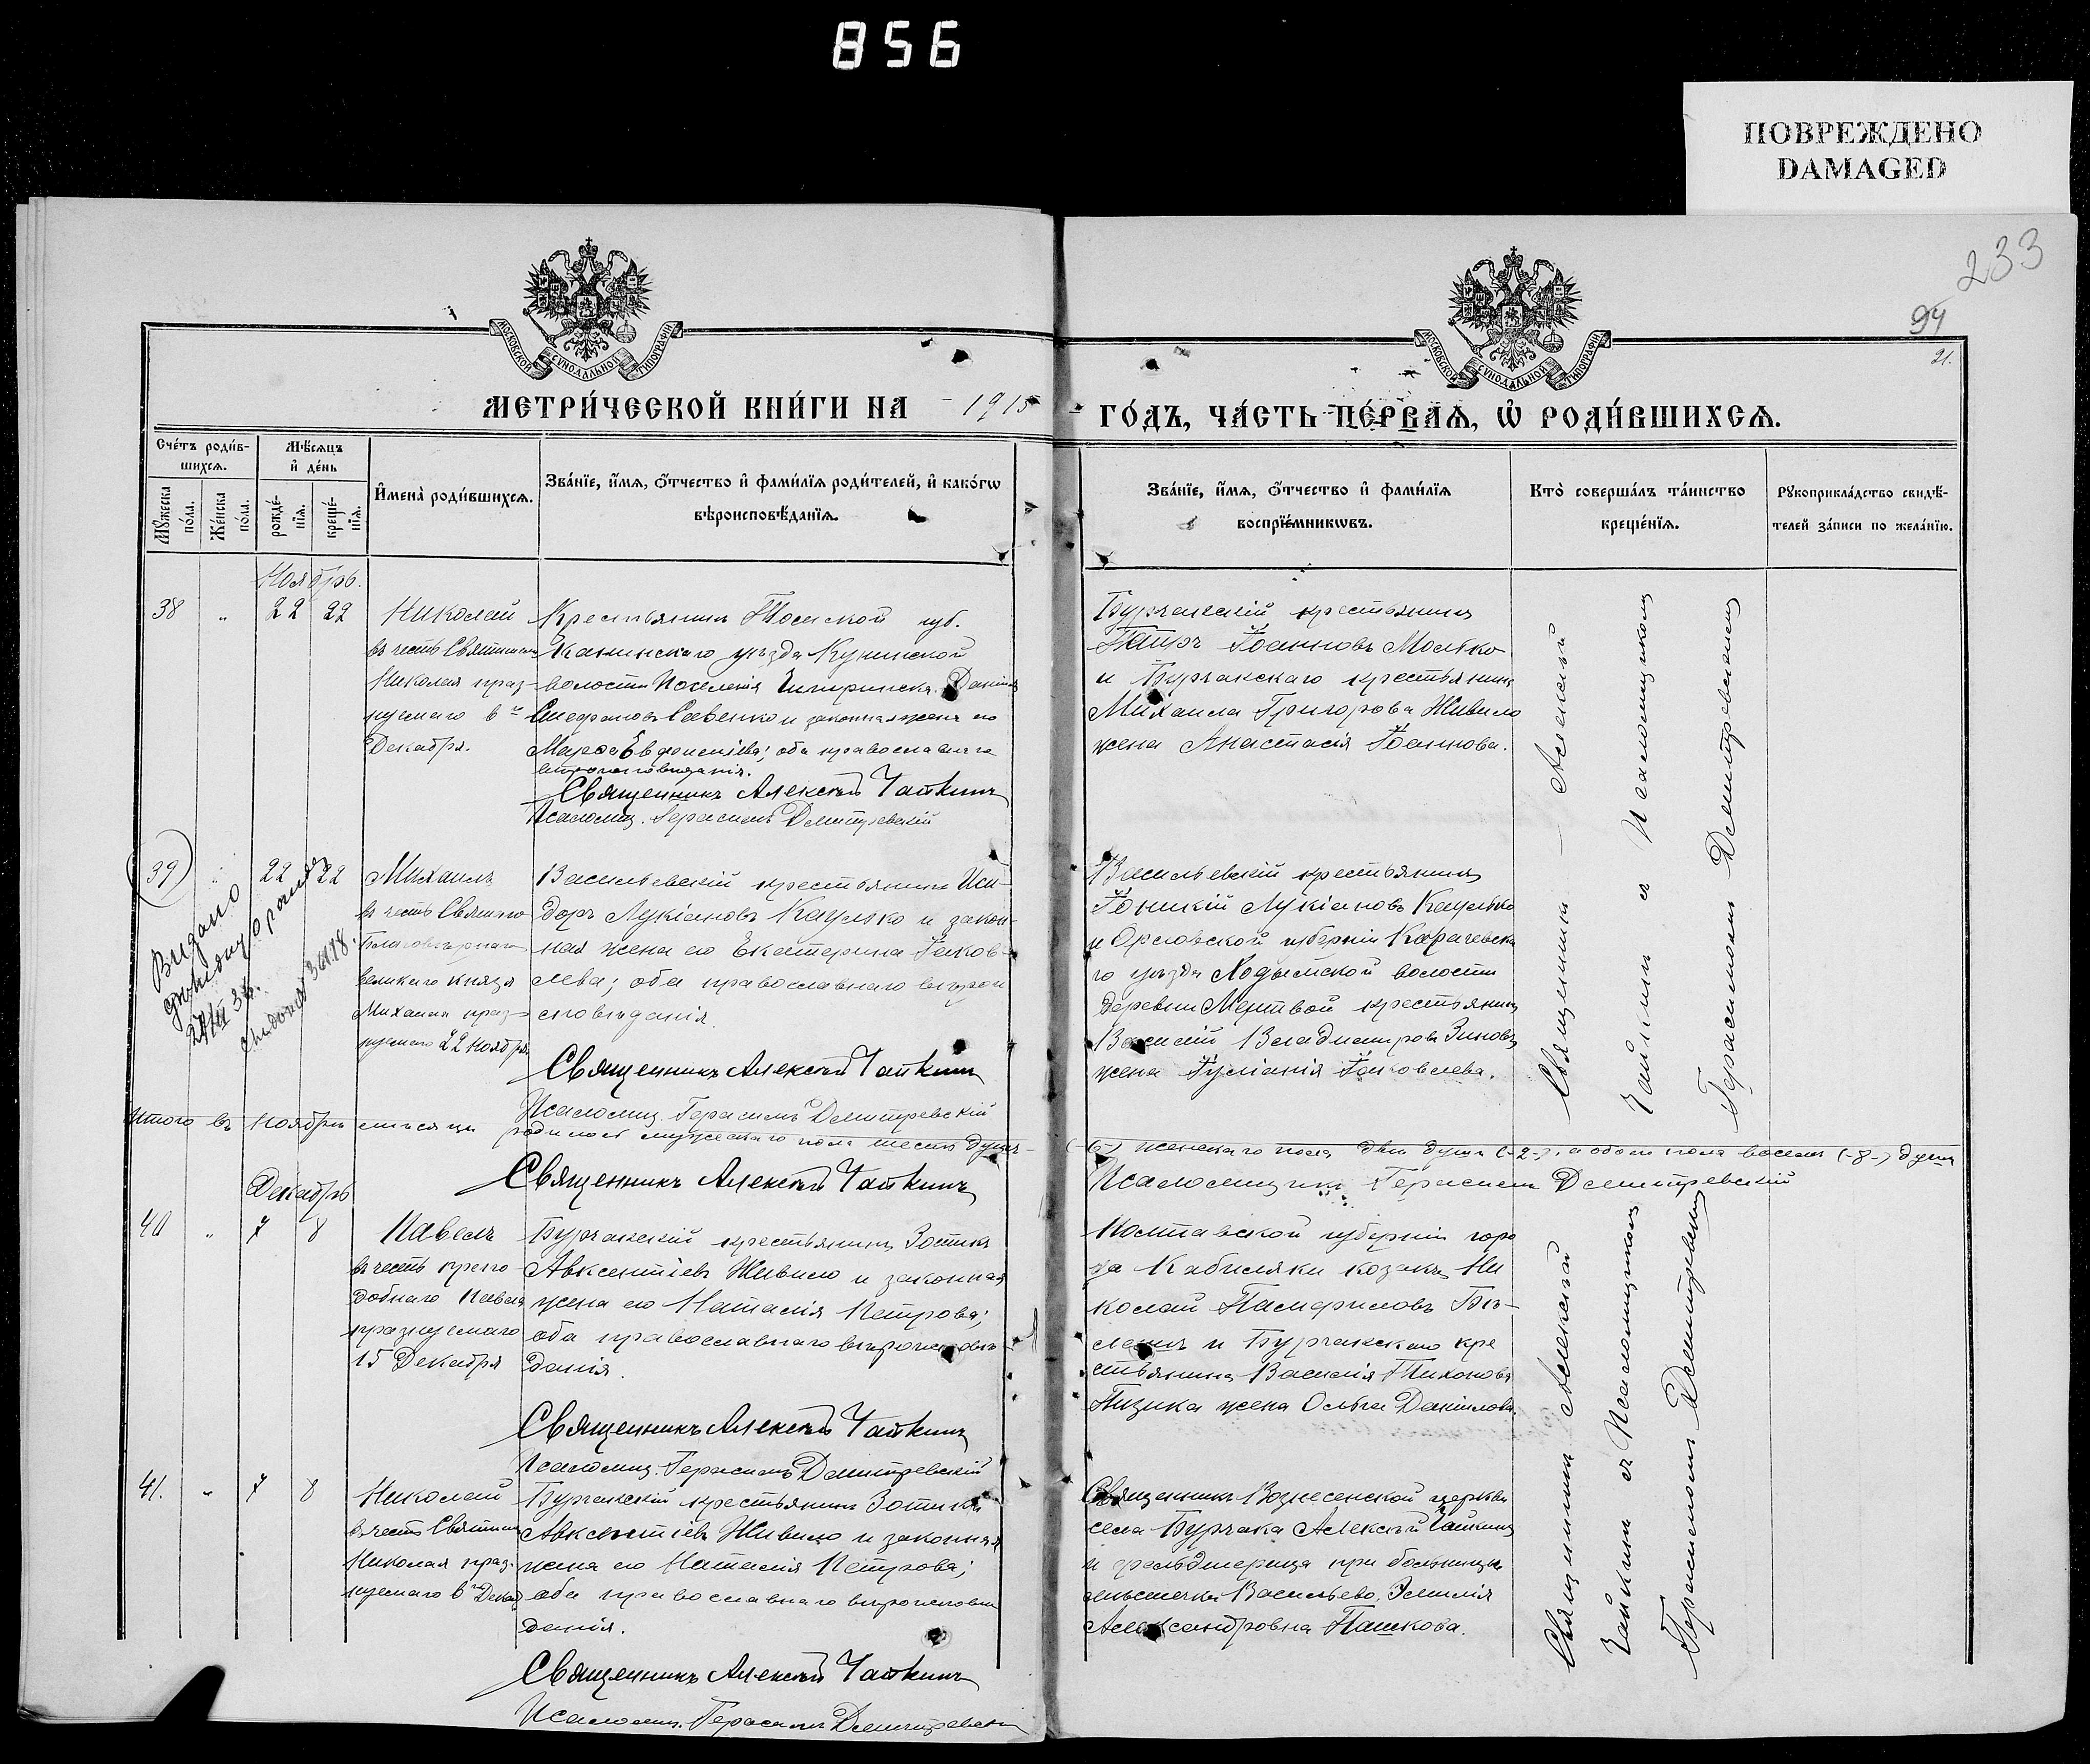 856
ПОВРЕЖДЕНО
DAMAGED
233
94
21.
МОСКОВСКОЙ СѴНОДАЛЬНОЙ ТИПОГРАФІИ
МОСКОВСКОЙ СѴНОДАЛЬНОЙ ТИПОГРАФІИ
МЕТРИ́ЧЕСКОЙ КНИ́ГИ НА 1915
ГО́ДЪ, ЧА́СТЬ ПЕ́РВАѦ, Ѡ РОДИ́ВШИХСѦ.
Сче́тъ роди́в-
шихсѧ.
Мꙋжеска
по́ла.
Же́нска
по́ла.
Мѣ́сѧцъ
и҆ де́нь
рожде́-
нїѧ.
креще́-
нїѧ.
И҆мена̀ роди́вшихсѧ.
Зва́нїе, и҆́мѧ, ѻ҆́тчество и҆ фами́лїѧ роди́телей, и҆ како́гѡ
вѣроисповѣ́данїѧ.
Зва́нїе, и҆́мѧ, ѻ҆́тчество и҆ фами́лїѧ
воспрїе́мникѡвъ.
Кто̀ соверша́лъ та́инство
креще́нїѧ.
Рꙋкоприкла́дство свидѣ́-
телей за́писи по жела́нїю.
Ноябрь.
38 " 22 22
Николай
въ честь Святителя
Николая праз-
нуемаго 6го
Декабря.
Крестьянинъ Томской губ.
Каинскаго уѣзда
волости Поселенія Даніилъ
Стефановъ Савенко и законная жена его
Марѳа; оба православнаго
вѣроисповѣданія.
Священникъ Алексѣй Чайкинъ
Псаломщ. Герасимъ Демитревскій
Бурчакскій крестьянинъ
Петръ Іоанновъ Молько
и Бурчакскаго крестьянина
Михаила Григорова Живило
жена Анастасія Іоаннова.
Священникъ Алексѣй
Чайкинъ съ Псаломщикомъ
Герасимомъ Демитревскимъ
39 " 22 22
Выдано
Михаилъ
въ честь Святаго
Благовѣрнаго
великаго князя
Михаила праз-
нуемаго 22 ноября
Васильевскій крестьянинъ Иси-
доръ Лукіановъ Кацулько и закон-
ная жена его Екатерина Іаков-
лева; оба православнаго вѣрои
сповѣданія.
Священникъ Алексѣй Чайкинъ
Псаломщ. Герасимъ Демитревскій
Васильевскій крестьянинъ
Лукіановъ Кацулько
и Орловской губерніи Карачевска
го уѣзда волости
деревни крестьянина
Василій Владимировъ Зиновъ
жена Іуліанія Іаковлева.
Итого въ ноябрѣ мѣсяцѣ родилось мужескаго пола шесть душъ
(-6-) женскаго пола двѣ души (-2-), а обоего пола восемь (-8-) душъ
Священникъ Алексѣй Чайкинъ
Псаломщикъ Герасимъ Демитревскій
Декабрь
40 " 7 8
Павелъ
въ честь препо
добнаго Павла
празнуемаго
15 Декабря
Бурчакскій крестьянинъ Зотикъ
Авксентіевъ Живило и законная
жена его Наталія Петрова;
оба православнаго вѣроисповѣ
данія.
Священникъ Алексѣй Чайкинъ
Псаломщ. Герасимъ Демитревскій
Полтавской губерніи горо
да Кабиляки козакъ Ни
колай Памфиловъ Бѣ-
и Бурчакскаго кре
стьянина Василія Тихонова
жена Ольга Даніилова.
Священникъ Алексѣй
Чайкинъ съ Псаломщикомъ
Герасимомъ Демитревскимъ
41. " 7 8
Николай
въ честь Святителя
Николая праз-
нуемаго 6го Декаб
Бурчакскій крестьянинъ Зотикъ
Авксентіевъ Живило и законная
жена его Наталія Петрова;
оба православнаго вѣроисповѣ
данія.
Священникъ Алексѣй Чайкинъ
Псаломщ. Герасимъ Демитревскій
Священникъ Вознесенской церкви
села Бурчака Алексѣй Чайкинъ
и фельдшерица при больницѣ
мѣстечка Васильево Эмилія
Александровна Пашкова.